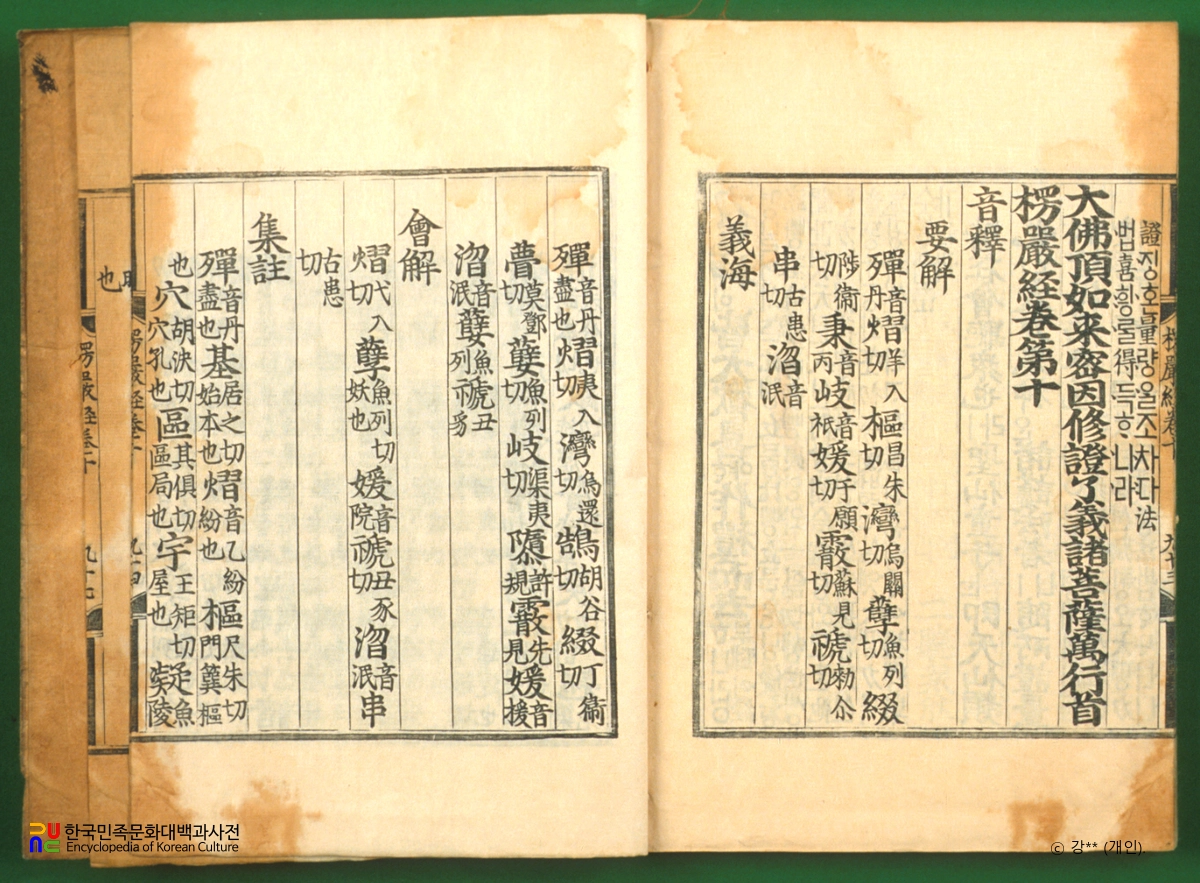 證징흔量량올조차다法
법喜힁를得득ᄒᆞ니라
大佛頂如來密因修證了義諸菩薩萬行首
楞嚴經卷第十
音釋
要解
殫音丹熠羊入切樞昌朱切灣烏關切孽魚列切綴
陟衞切秉音丙岐音祇媛于願切霰蘇見切禠勑尒切
串古患切涽音泯
義海
楞嚴經卷十
九十三
殫音丹盡也熠夷入切灣烏還切鵠胡谷切綴丁衞切
瞢莫鄧切孽魚列切岐渠夷切隳許規霰先見媛音援
涽音泯孽魚列禠丑豸
會解
熠弋入切孽魚列切妖也媛音院禠丑豕切涽音泯串
古患切
集註
殫音丹盡也基居之切始本也熠音乙紛紛也樞尺朱切門簨樞
也穴胡泬切穴孔也區其俱切區局也宇王矩切屋也㚇魚陵
楞嚴經卷十
九十四
也
楞嚴經卷十
한국민족문화대백과사전
Encyclopedia of Korean Culture
ⓒ 강** (개인).